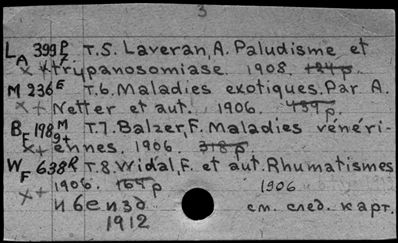 3
L A 399 P/7 т.5. Laveran, A. Paludisme et
x + trypanosomiase. 1908. 124 p.
M 236 E т.6. Maladies exotiques. Par A.
x + Netter et aut. 1906. 439 p.
B E 198 M/9+ т.7. Balzer, F. Maladies vénéri-
x + ennes. 1906. 318 p.
W F 638 R т.8. Widal, F. et aut. Rhumatismes
x + 1906. 164 p 1906
и 6e изд. см. след. карт.
1912